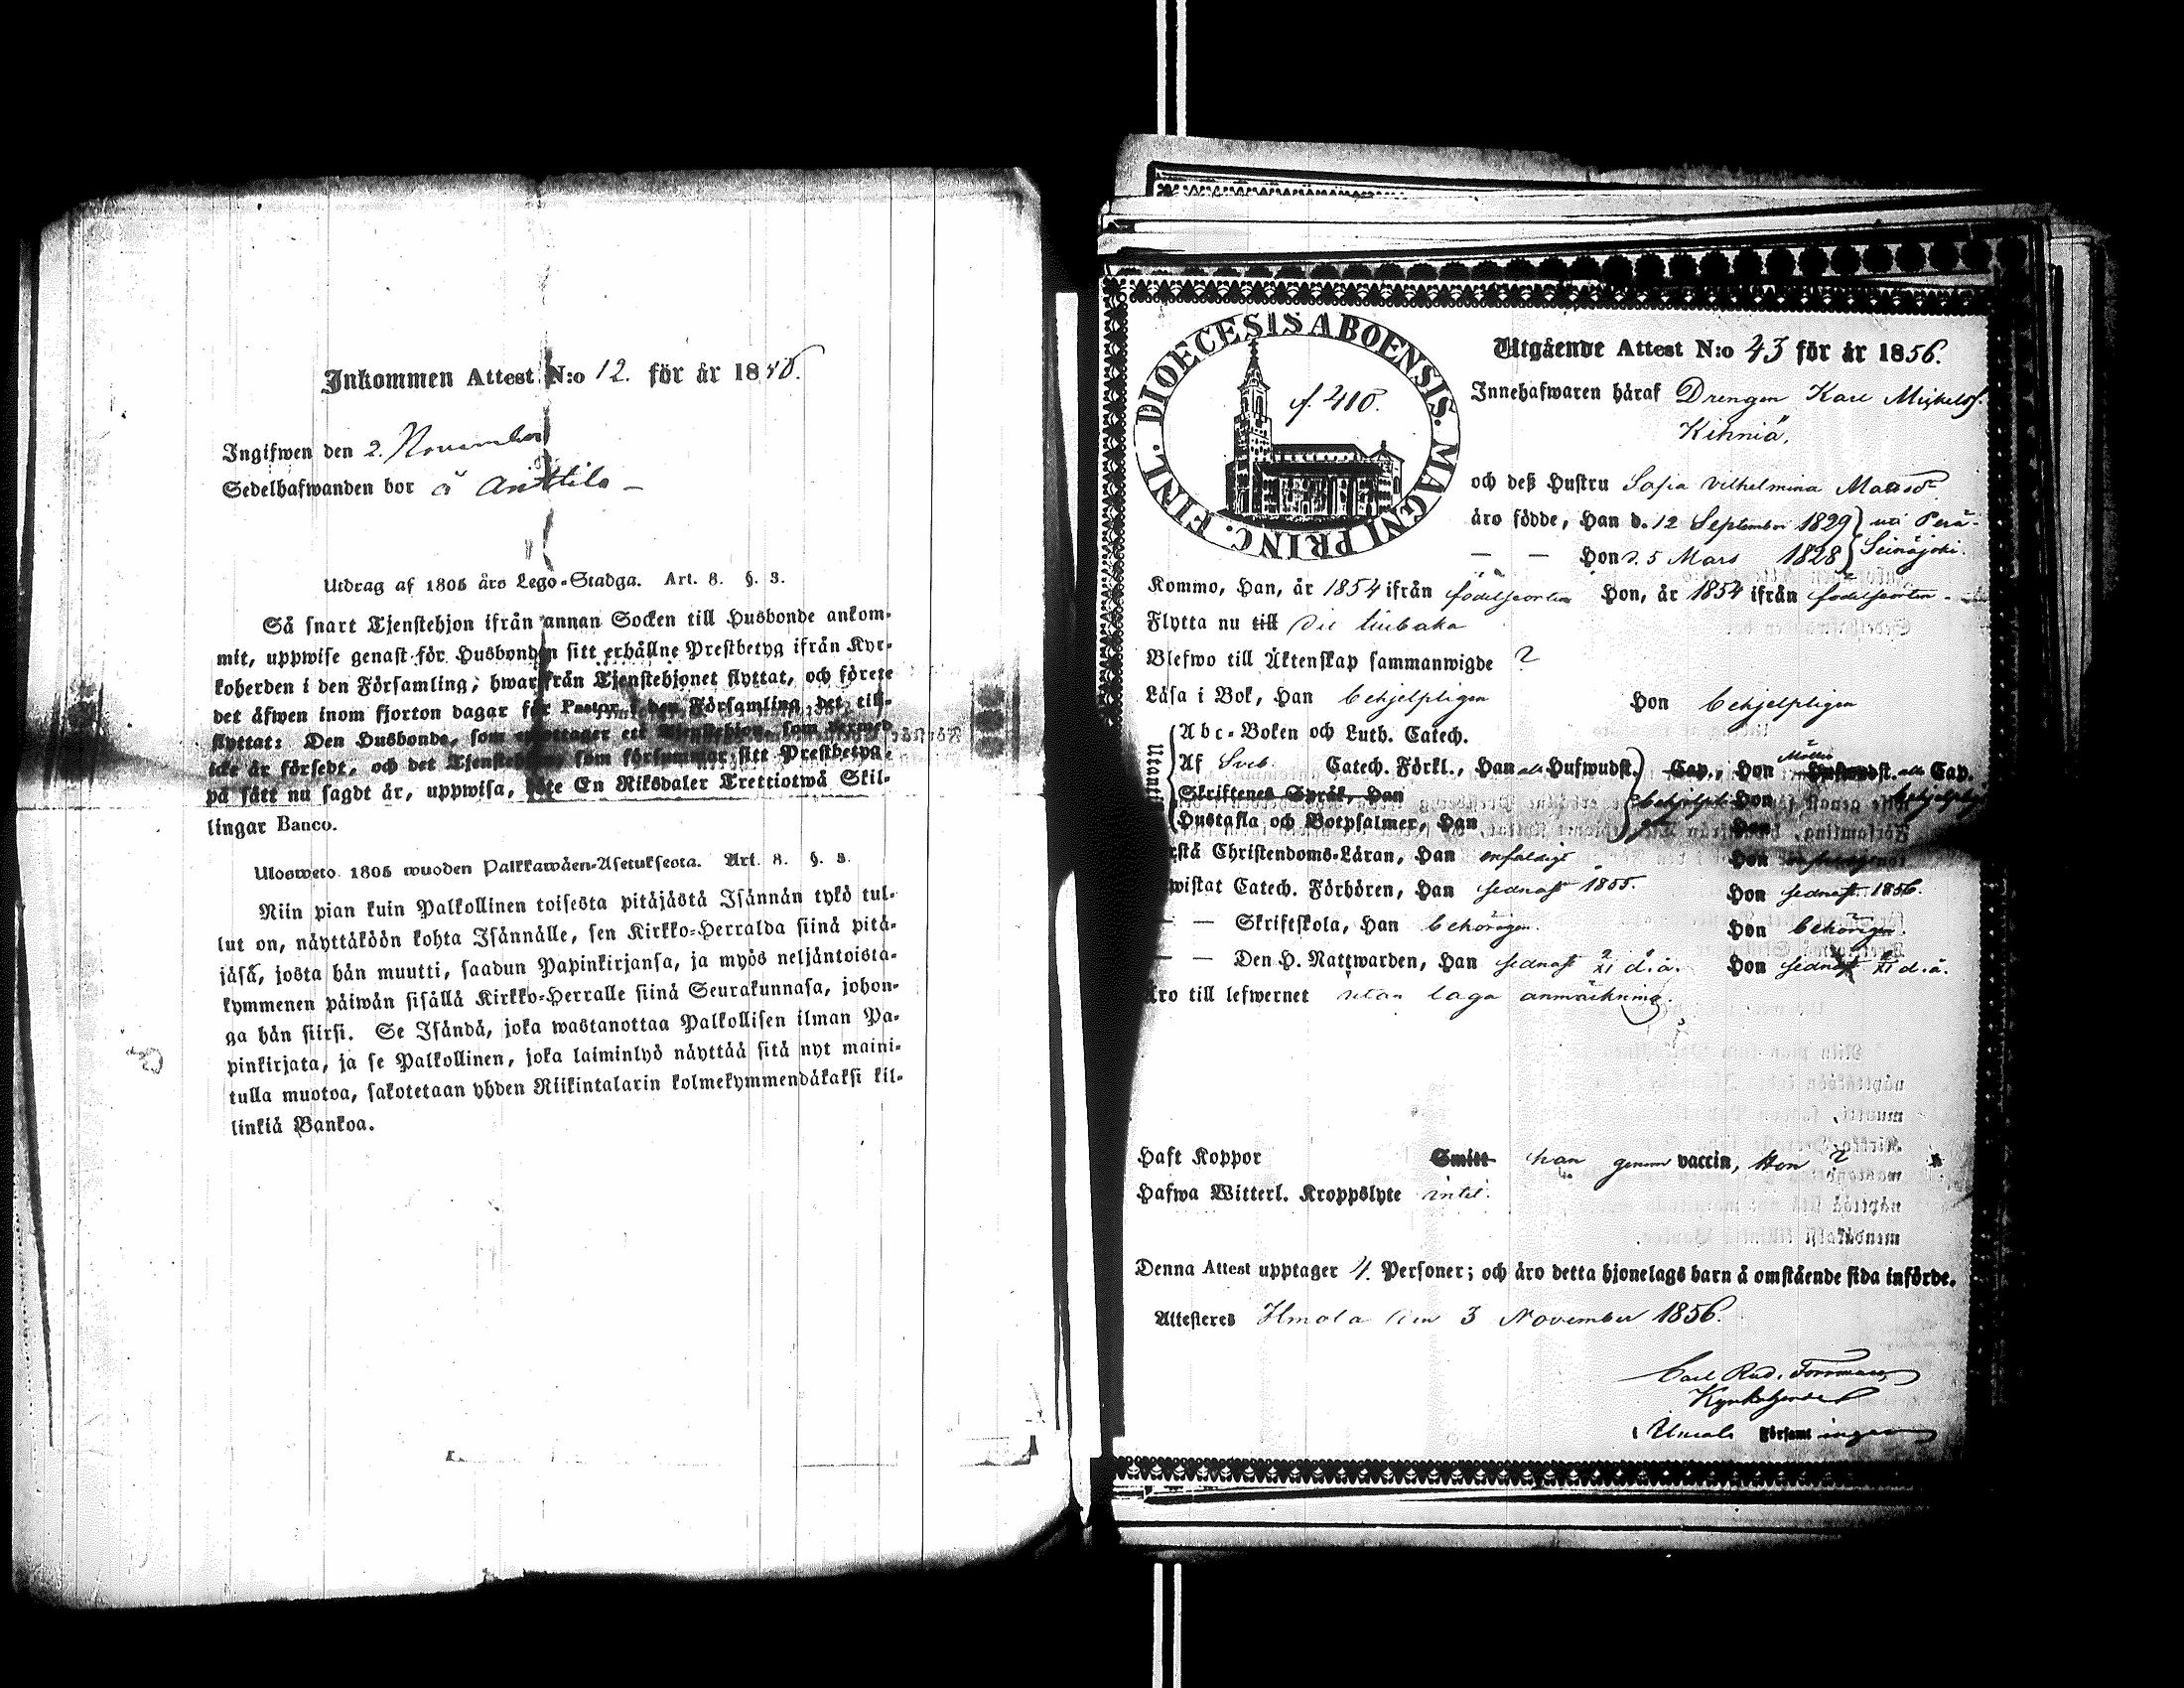 Inkommen Attest N:o 12. för år 18
Ingifwen den 2. November
Sedelhafwanden bor å Anttila –
Utdrag af 1805 års Lego-Stadga. Art. 8. §. 3.
Så snart Tjenstehjon ifrån annan Socken till Husbonde ankom-
mit, uppwise genast för Husbonden sitt erhållne Prestbetyg ifrån Kyr-
koherden i den Församling, hwarifrån Tjenstehjonet flyttat, och förete
det äfwen inom fjorton dagar för Pastor i den Församling, det till-
flyttat: Den Husbonde, som emottager ett Tjenstehjon, som dermed
icke är försedt, och det Tjenstehjon, som försummar sitt Prestbetyg,
på sätt nu sagdt är, uppwisa, böte En Riksdaler Trettiotwå Skil-
lingar Banco.
Ulosweto 1805 wuoden Palkkawäen-Asetuksesta. Art. 8. §. 3.
Niin pian kuin Palkollinen toisesta pitäjästä Isännän tykö tul-
lut on, näyttäköön kohta Isännälle, sen Kirkko-Herralda siinä pitä-
jäsä, josta hän muutti, saadun Papinkirjansa, ja myös neljäntoista-
kymmenen päiwän sisällä Kirkko-Herralle siinä Seurakunnasa, johon-
ga hän siirsi. Se Isändä, joka wastanottaa Palkollisen ilman Pa-
pinkirjata, ja se Palkollinen, joka laiminlyö näyttää sitä nyt maini-
tulla muotoa, sakotetaan yhden Riikintalarin kolmekymmendäkaksi kil-
linkiä Bankoa.
DIOECESIS ABOENSIS. MAGNI PRINC. FINL.
f. 410.
Utgående Attest N:o 43 för år 1856.
Innehafwaren häraf Drengen Karl Mickelsf.
Kihniä.
och deß Hustru Sofia Vilhelmina
äro födde, Han d. 12 September 1829 } uti Perä-
— — Hon d. 5 Mars 1828 } Seinäjoki.
Kommo, Han, år 1854 ifrån födelseorten Hon, år 1854 ifrån födelseorten.
Flytta nu till dit tillbaka
Blefwo till Äktenskap sammanwigde ?
Läsa i Bok, Han behjelpligen Hon behjelpligen
Utantil
Abc-Boken och Luth. Catech.
Af Sveb. Catech. Förkl., Han alla Hufwudst. Cap., Hon Hufwudst. alla Cap.
Skriftenes Språk, Han Hon
Hustafla och Botpsalmer, Han Hon
Förstå Christendoms-Läran, Han enfaldigt Hon
Bewistat Catech. Förhören, Han sednast 1855. Hon sednast 1856.
— — Skriftskola, Han behörigen. Hon behörigen.
— — Den H. Nattwarden, Han sednast 2/XI d. å. Hon sednast 2/XI d. å.
Äro till lefwernet utan laga anmärkning.
Haft Koppor Smitt han genom vaccin, Hon ?
Hafwa Witterl. Kroppslyte intet.
Denna Attest upptager 4. Personer; och äro detta hjonelags barn å omstående sida införde.
Attesteres Ilmola den 3 November 1856.
Carl Rud. Forsman
Kyrkoherde
i Ilmola Församlingen